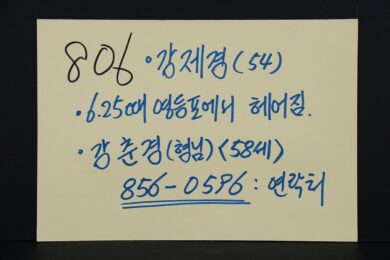 806 · 강제경(54)
· 6.25때 영등포에서 헤어짐.
· 강춘경(형님)<58세>
856-0596 : 연락처